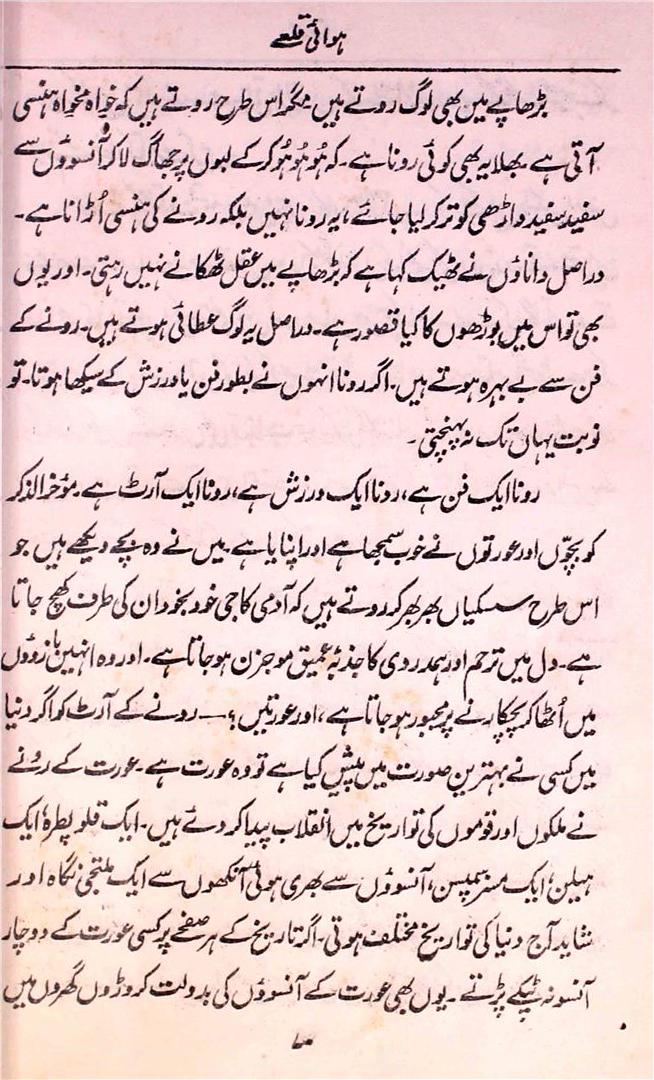 ہوائی قلعے
بڑھاپے میں بھی لوگ روتے ہیں مگر اس طرح روتے ہیں کہ خواہ مخواہ ہنسی
آتی ہے۔ بھلا یہ بھی کوئی رونا ہے۔ کہ ہُو ہُو ہُو کر کے لبوں پر جھاگ لا کر آنسوؤں سے
سفید سفید داڑھی کو تر کر لیا جائے، یہ رونا نہیں بلکہ رونے کی ہنسی اُڑانا ہے۔
دراصل داناؤں نے ٹھیک کہا ہے کہ بڑھاپے میں عقل ٹھکانے نہیں رہتی۔ اور یوں
بھی تو اس میں بوڑھوں کا کیا قصور ہے۔ دراصل یہ لوگ عطائی ہوتے ہیں۔ رونے کے
فن سے بے بہرہ ہوتے ہیں۔ اگر رونا انہوں نے بطور فن یا ورزش کے سیکھا ہوتا۔ تو
نوبت یہاں تک نہ پہنچتی۔
رونا ایک فن ہے، رونا ایک ورزش ہے، رونا ایک آرٹ ہے۔ مؤخر الذکر
کو بچّوں اور عورتوں نے خوب سمجھا ہے اور اپنایا ہے۔ میں نے وہ بچے دیکھے ہیں جو
اس طرح سسکیاں بھر بھر کر روتے ہیں کہ آدمی کا جی خود بخود ان کی طرف کھچ جاتا
ہے۔ دل میں ترحم اور ہمدردی کا جذبۂ عمیق موجزن ہو جاتا ہے۔ اور وہ انہیں بازوؤں
میں اُٹھا کر پچکارنے پر مجبور ہو جاتا ہے، اور عورتیں؟ — رونے کے آرٹ کو اگر دنیا
میں کسی نے بہترین صورت میں پیش کیا ہے تو وہ عورت ہے۔ عورت کے رونے
نے ملکوں اور قوموں کی تواریخ میں انقلاب پیدا کر دئے ہیں۔ ایک قلوپطرہ، ایک
ہیلن، ایک مسز سمپسن، آنسوؤں سے بھری ہوئی آنکھوں سے ایک ملتجی نگاہ اور
شاید آج دنیا کی تواریخ مختلف ہوتی۔ اگر تاریخ کے ہر صفحے پر کسی عورت کے دو چار
آنسو نہ ٹپکے پڑتے۔ یوں بھی عورت کے آنسوؤں کی بدولت کروڑوں گھروں میں